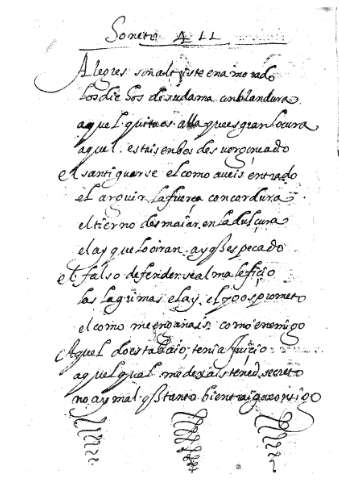 Soneto A LL
Alegres señales triste enamorado
los dichos de su dama con blandura
aquel quitaos alla que es gran locura
aquel estais en bos desvergonçado
el santiguarse el como aveis entrado
el arguir la fuerça con cordura
el tierno desmaiar en la dulçura
el ay que lo oiran ay qes pecado
el falso defenderse al maleficio
las lagrimas el ay el yo os prometo
el como me engañais como enemigo
Aquel do estaba io tenia juiçio
aquel qual me dexais tened secreto
no ay mal q tanto bien traiga consigo